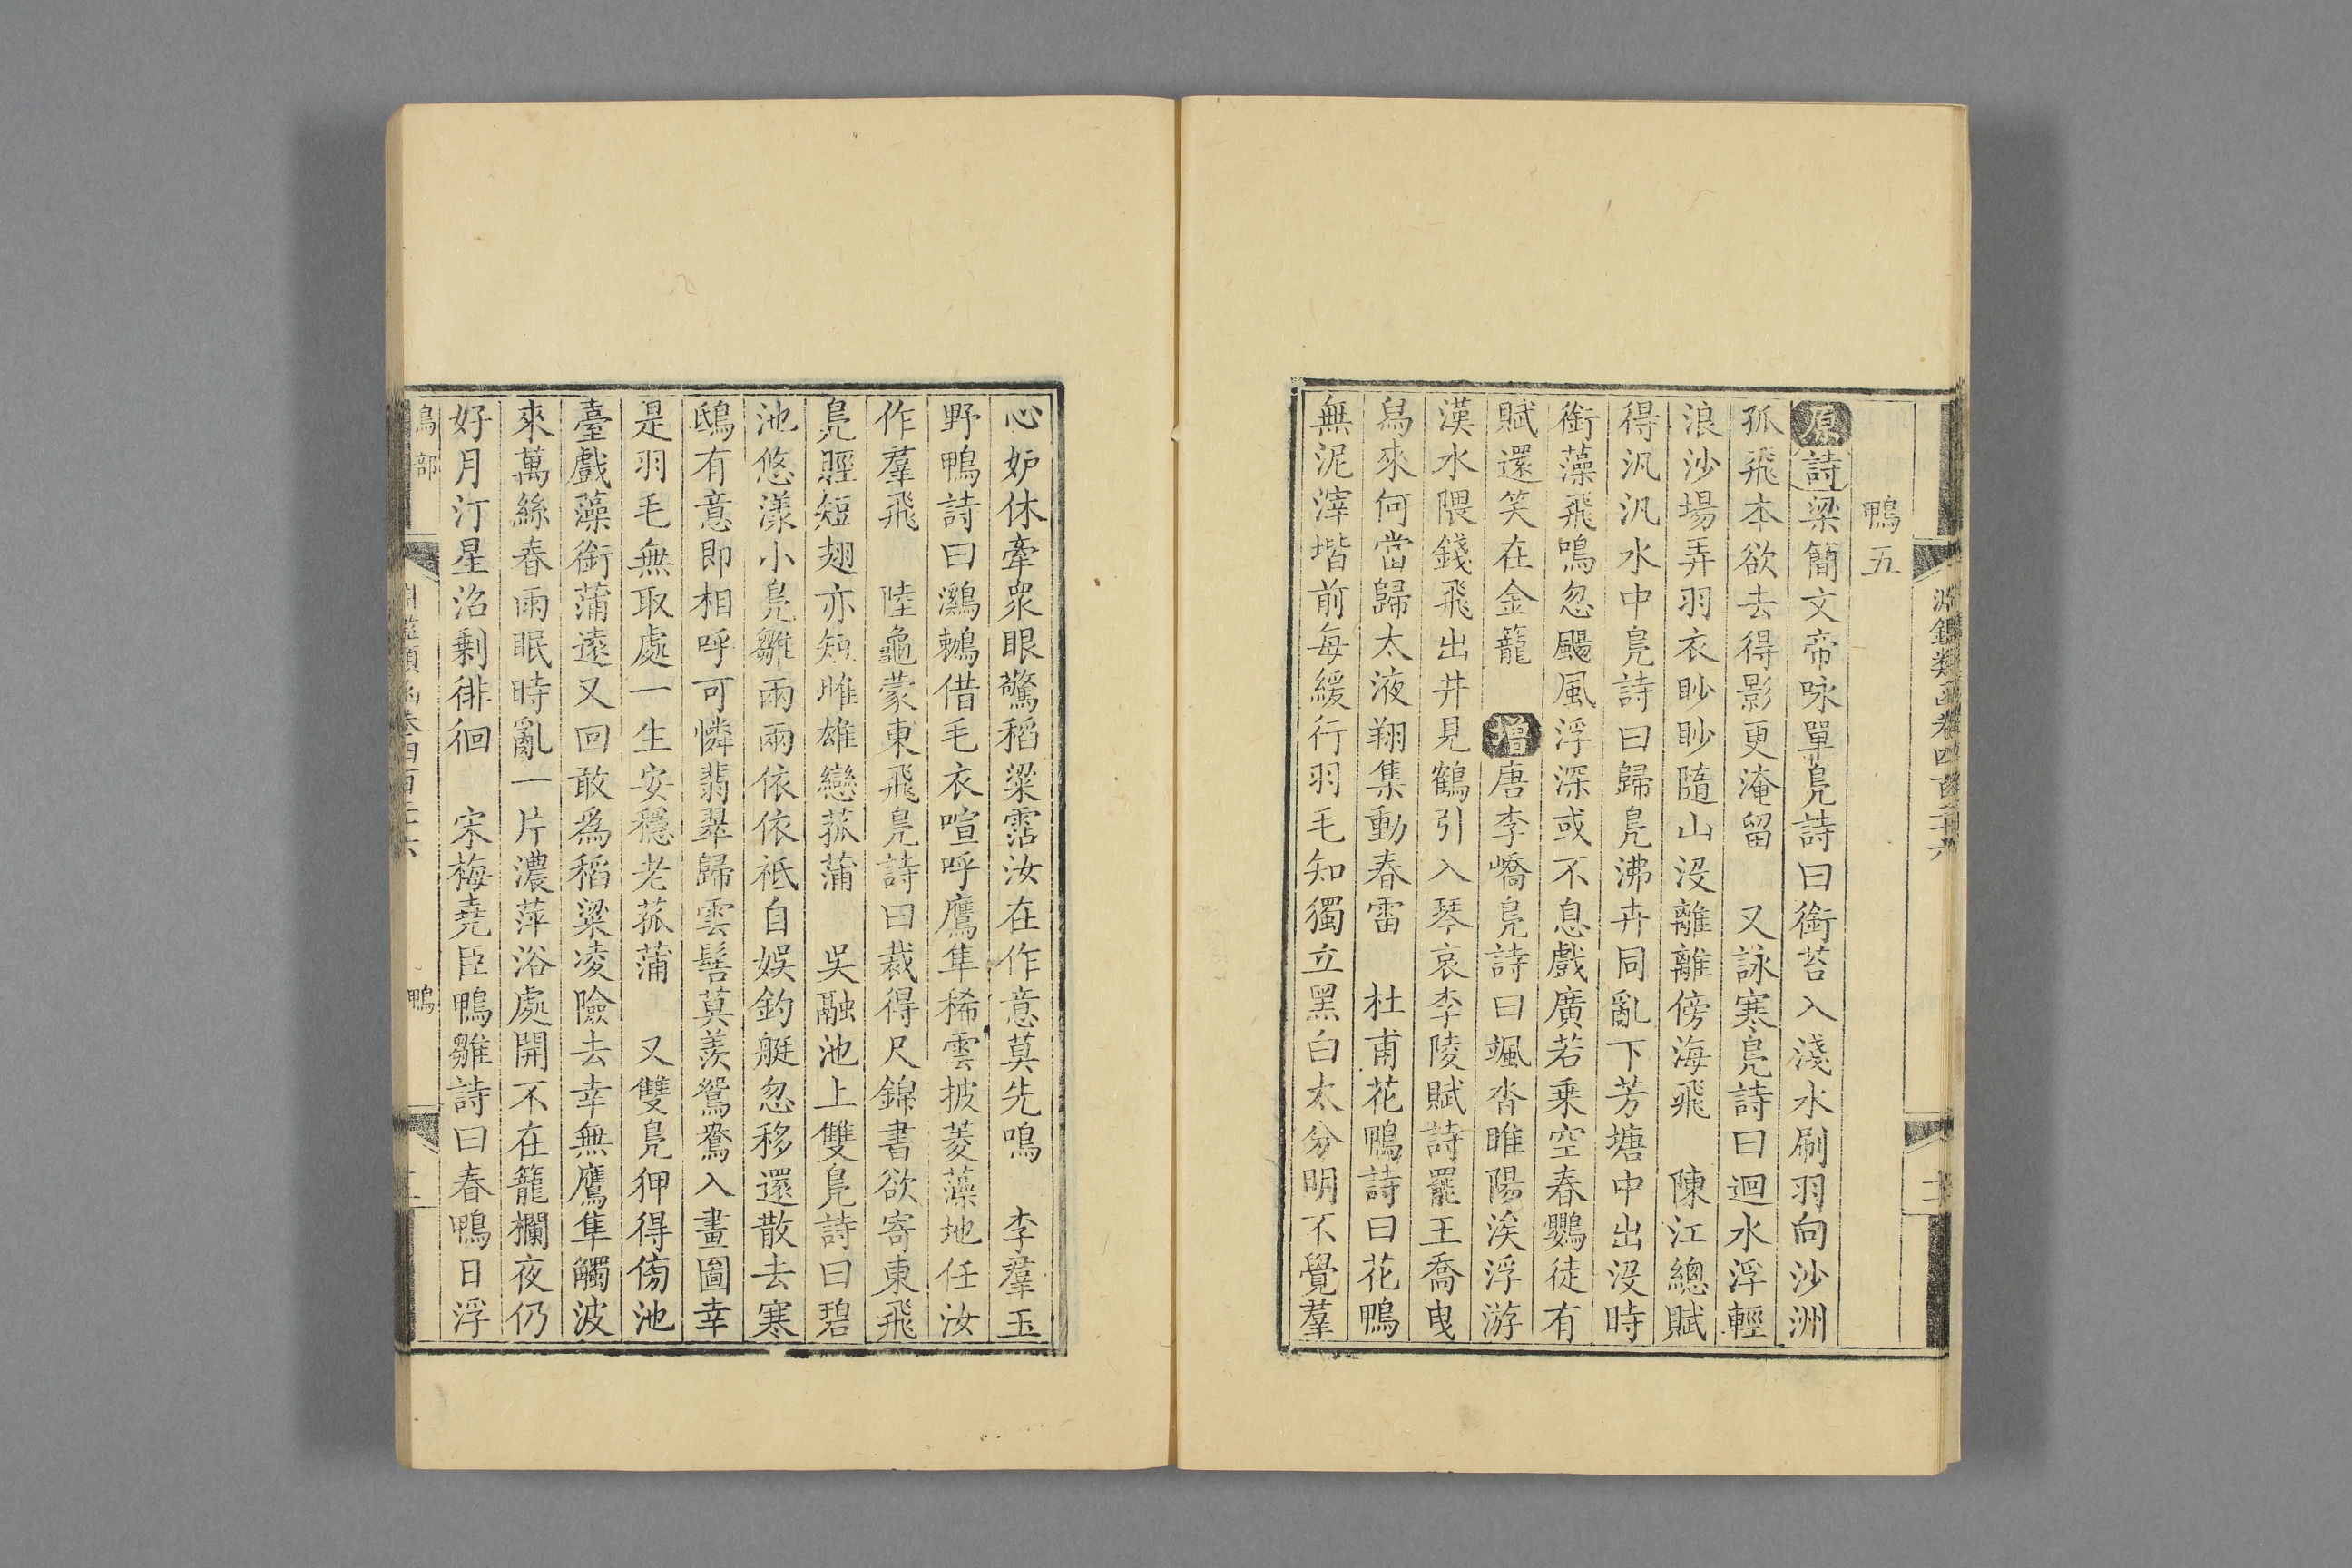 淵鑑類函卷四百二十六
鴨五
原詩梁簡文帝咏單鳧詩曰銜苔入淺水刷羽向沙洲
孤飛本欲去得影更淹留　又詠寒鳧詩曰迴水浮輕
浪沙場弄羽衣眇眇隨山没離離傍海飛　陳江總賦
得汎汎水中鳧詩曰歸鳧沸卉同亂下芳塘中出没時
銜藻飛鳴忽颺風浮深或不息戲廣若乘空春鸚徒有
賦還笑在金籠　增唐李嶠鳧詩曰颯沓睢陽涘浮游
漢水隈錢飛出井見鶴引入琴哀李陵賦詩罷王喬曳
舄來何當歸太液翔集動春雷　杜甫花鴨詩曰花鴨
無泥滓堦前每緩行羽毛知獨立黑白太分明不覺羣
心妒休牽衆眼驚稻粱霑汝在作意莫先鳴　李羣玉
野鴨詩曰鸂鶒借毛衣喧呼鷹隼稀雲披菱藻地任汝
作羣飛　陸龜蒙東飛鳧詩曰裁得尺錦書欲寄東飛
鳧脛短翅亦短雌雄戀菰蒲　吳融池上雙鳧詩曰碧
池悠漾小鳧雛兩兩依依衹自娛釣艇忽移還散去寒
鴟有意即相呼可憐翡翠歸雲髻莫羨鴛鴦入畫圖幸
是羽毛無取處一生安穩老菰蒲　又雙鳧狎得傍池
臺戲藻銜蒲遠又回敢為稻粱凌險去幸無鷹隼觸波
來萬絲春雨眠時亂一片濃萍浴處開不在籠欄夜仍
好月汀星沼剩徘徊　宋梅堯臣鴨雛詩曰春鴨日浮
鳥部　淵鑑類函卷四百二十六　鴨